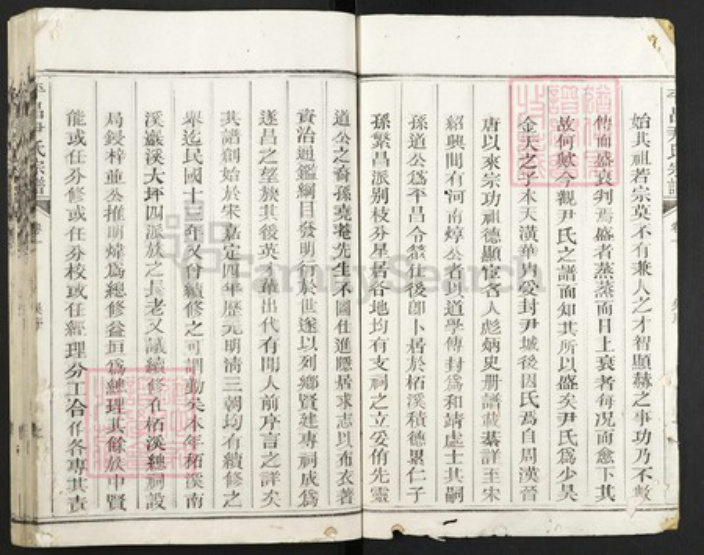 始其祖若宗莫不有兼人之才智顯赫之事功乃不數
傳而盛衰判焉盛者蒸蒸而日上衰者每况而愈下其
故何歟今觀尹氏之譜而知其所以盛矣尹氏爲少昊
金天之子木天潢華胄受封尹城後因氏焉自周漢晉
唐以來宗功祖德顯宦名人彪炳史册譜載綦詳至宋
紹興間有河南焞公者以道學傳封爲和靖處士其嗣
孫道公爲平昌令蒞任後卽卜居於栢溪積德累仁子
孫繁昌派别枝分星居各地均有支祠之立妥侑先靈
道公之裔孫堯菴先生不圖仕進隱居求志以布衣著
資治通鑑綱目發明行於世遂以列鄉賢建專祠成爲
遂昌之望族其後英才華出代有聞人前序言之詳矣
其譜創始於宋嘉定四年歷元明淸三朝均有續修之
舉迄民國十三年又台續修之可謂勤矣本年栢溪南
溪巖溪大坪四派族之長老又議續修在栢溪總祠設
局鋟梓並公推明煒爲總修益垣爲總理其餘族中賢
能或任分修或任分校或任經理分工合作各專其責
平昌尹氏宗譜
卷一
平昌尹氏宗譜
卷一
FamilySearch